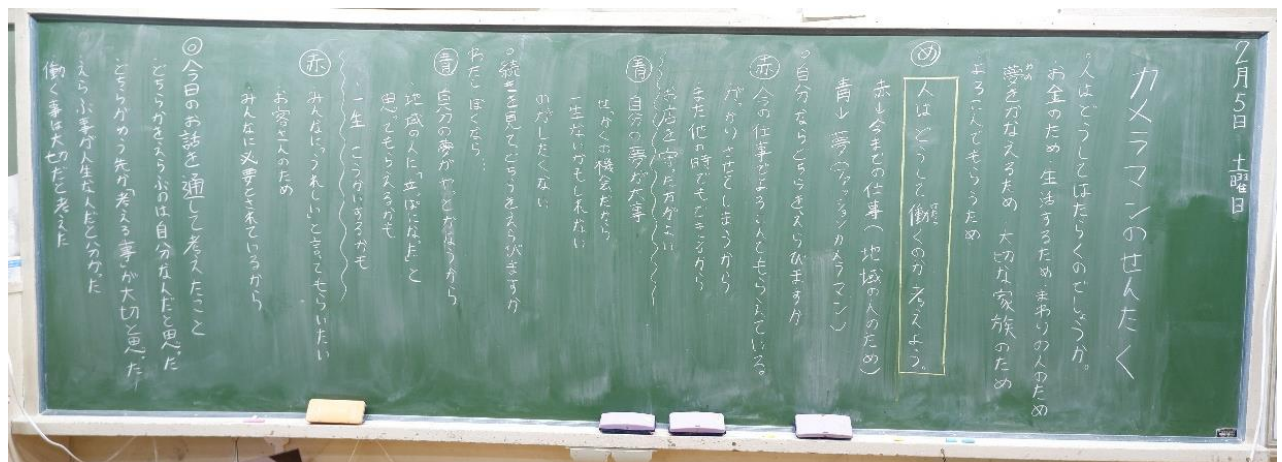 2月5日 土曜日
カメラマンのせんたく
○人はどうしてはたらくのでしょうか。
お金のため・生活するため・まわりの人のため
夢をかなえるため 大切な家族のため
よろこんでもらうため
め 人はどうして働くのか考えよう。
赤→今までの仕事(地域の人のため)
青→夢(ファッションカメラマン)
○自分ならどちらをえらびますか
赤 今の仕事でよろこんでもらえている。
がっかりさせてしまうから
また他の時でもできるから
お店を守った方がよい
青 自分の夢が大事
せっかくの機会だから
一生ないかもしれない
のがしたくない
○続きを見てどちらをえらびますか
わたし ぼくなら…
青 自分の夢がやっとかなうから
地域の人に「立ぱになった」と
思ってもらえるかも
一生こうかいするかも
赤 みんなに「うれしい」と言ってもらいたい
お客さんのため
みんなに必要とされているから
◎今日のお話を通して考えたこと
どちらかをえらぶのは自分なんだと思った
どちらがわう先か「考える事」が大切と思った
えらぶ事が人生なんだと分かった
働く事は大切だと考えた